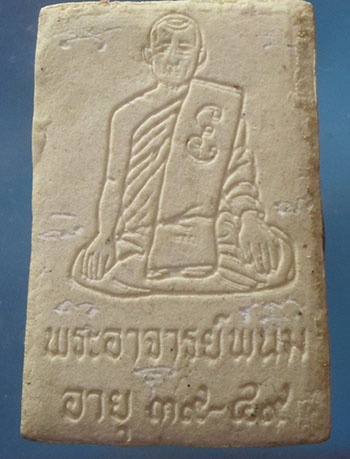 พระอาจารย์พนม
อายุ ๓๙-๔๙